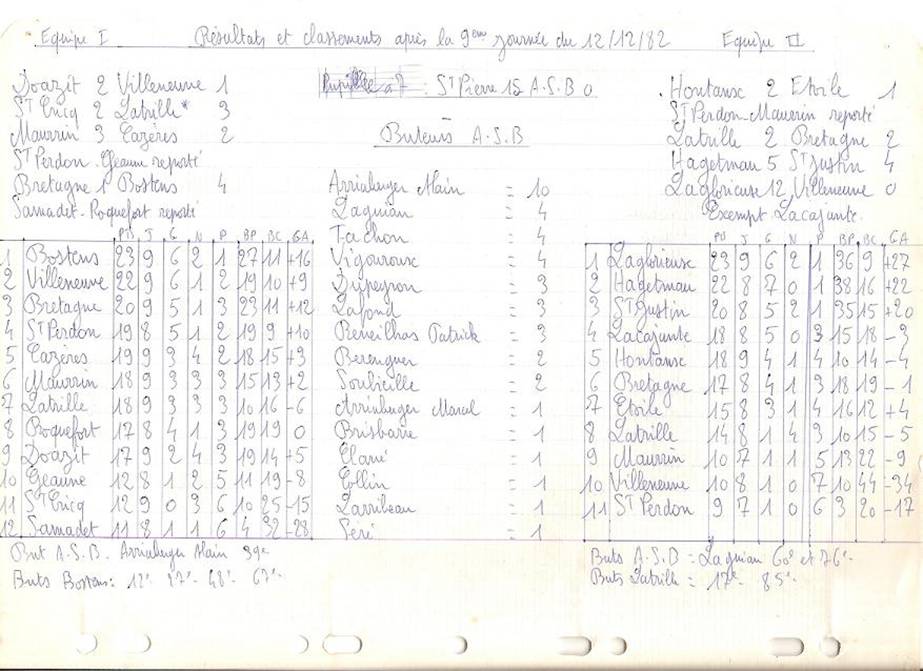 Equipe I Résultats et classements après la 9ème journée du 12/12/82 Equipe II
Doazit 2 Villeneuve 1
St Cricq 2 Latrille* 3
Maurrin 3 Cazères 2
St Perdon - Geaune reporté
Bretagne 1 Bostens 4
Samadet - Roquefort reporté
: St Pierre 15 A.S.B 0
Buteurs A.S.B
Houtanx 2 Etoile 1
St Perdon - Maurrin reporté
Latrille 2 Bretagne 2
Hagetman 5 St Justin 4
Laglorieuse 12 Villeneuve 0
Exempt Lacajunte
Arrialunger Alain = 10
Laguian = 4
Tachon = 4
Vigouroux = 4
Dupeyron = 3
Lafond = 3
Reneilhas Patrick = 3
Berenguer = 2
Soubieille = 2
Marcel = 1
Brisbarre = 1
Claré = 1
= 1
Larribeau = 1
Séré = 1
PTS J G N P BP BC GA
1 Bostens 23 9 6 2 1 27 11 +16
2 Villeneuve 22 9 6 1 2 19 10 +9
3 Bretagne 20 9 5 1 3 23 11 +12
4 St Perdon 19 8 5 1 2 19 9 +10
5 Cazères 19 9 3 4 2 18 15 +3
6 Maurrin 18 9 3 3 3 15 13 +2
7 Latrille 18 9 3 3 3 10 16 -6
8 Roquefort 17 8 4 1 3 19 19 0
9 Doazit 17 9 2 4 3 19 14 +5
10 Geaune 12 8 1 2 5 11 19 -8
11 St Cricq 12 9 0 3 6 10 25 -15
12 Samadet 11 8 1 1 6 4 32 -28
PTS J G N P BP BC GA
1 Laglorieuse 23 9 6 2 1 36 9 +27
2 Hagetman 22 8 7 0 1 38 16 +22
3 St Justin 20 8 5 2 1 35 15 +20
4 Lacajunte 18 8 5 0 3 15 18 -3
5 Houtanx 18 9 4 1 4 10 14 -4
6 Bretagne 17 8 4 1 3 18 19 -1
7 Etoile 15 8 3 1 4 16 12 +4
8 Latrille 14 8 1 4 3 10 15 -5
9 Maurrin 10 7 1 1 5 13 22 -9
10 Villeneuve 10 8 1 0 7 10 44 -34
11 St Perdon 9 7 1 0 6 3 20 -17
But A.S.B. Arrialunger Alain 39e
Buts Bostens: 12e 48e 67e
Buts A.S.B = Laguian 60e et 76e
Buts Latrille = 17e 85e